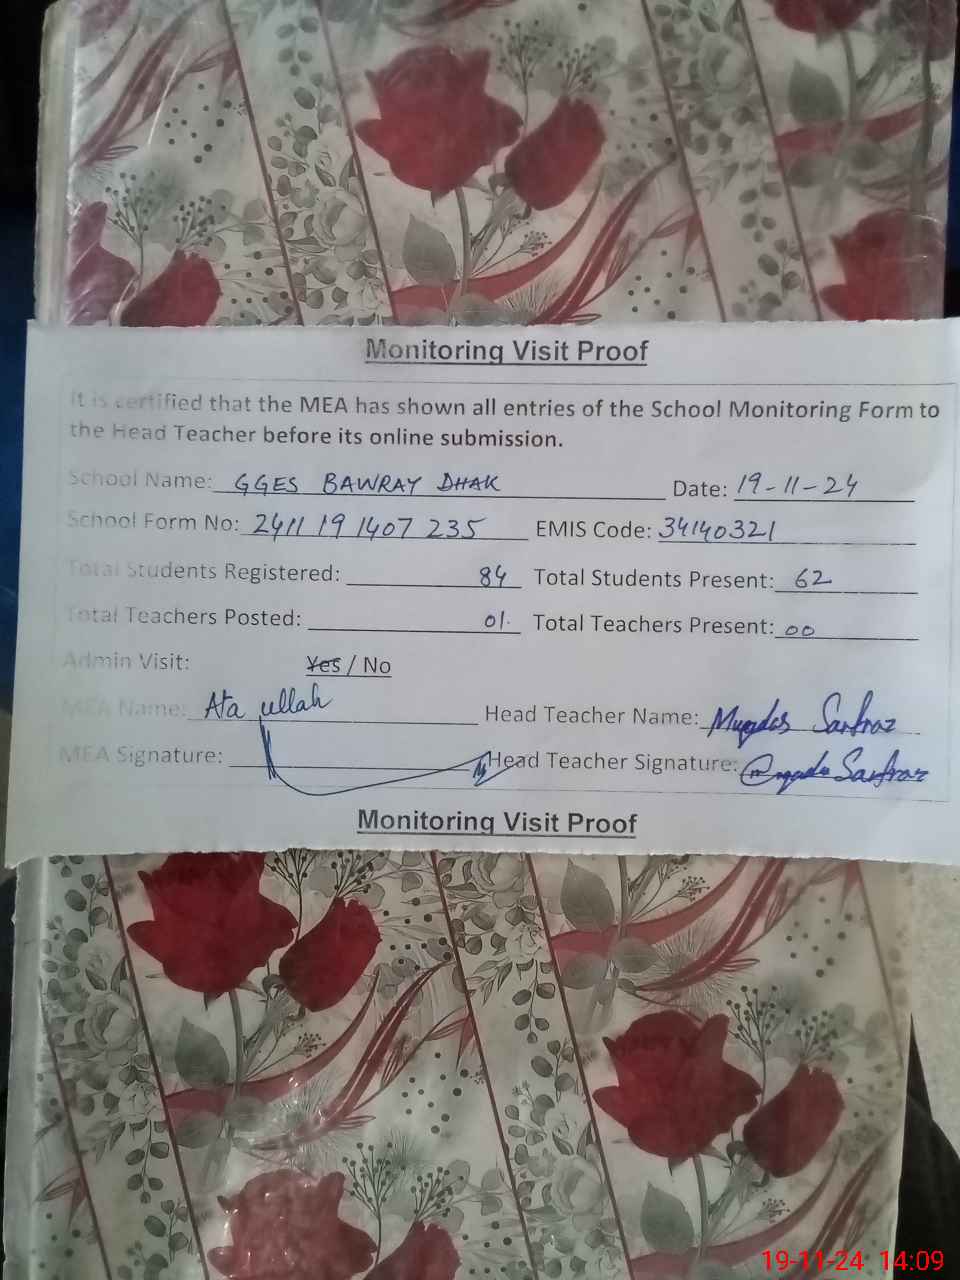 Monitoring Visit Proof
It is certified that the MEA has shown all entries of the School Monitoring Form to
the Head Teacher before its online submission.
School Name: GGES BAWRAY DHAK Date: 19-11-24
School Form No: 2411 19 1407 235 EMIS Code: 34140321
Total Students Registered: 84 Total Students Present: 62
Total Teachers Posted: 01. Total Teachers Present: 00
Admin Visit: Yes / No
MEA Name: Ata ullah Head Teacher Name: Muqdas Sarfraz
MEA Signature: Head Teacher Signature: Sarfraz
Monitoring Visit Proof
19-11-24 14:09